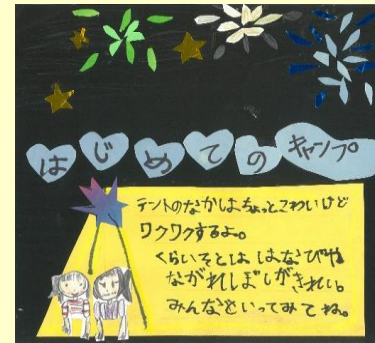 はじめてのキャンプ
テントのなかはちょっとこわいけど
ワクワクするよ。
くらいそとは はなびや
ながれぼしがきれい。
みんなといってみてね。